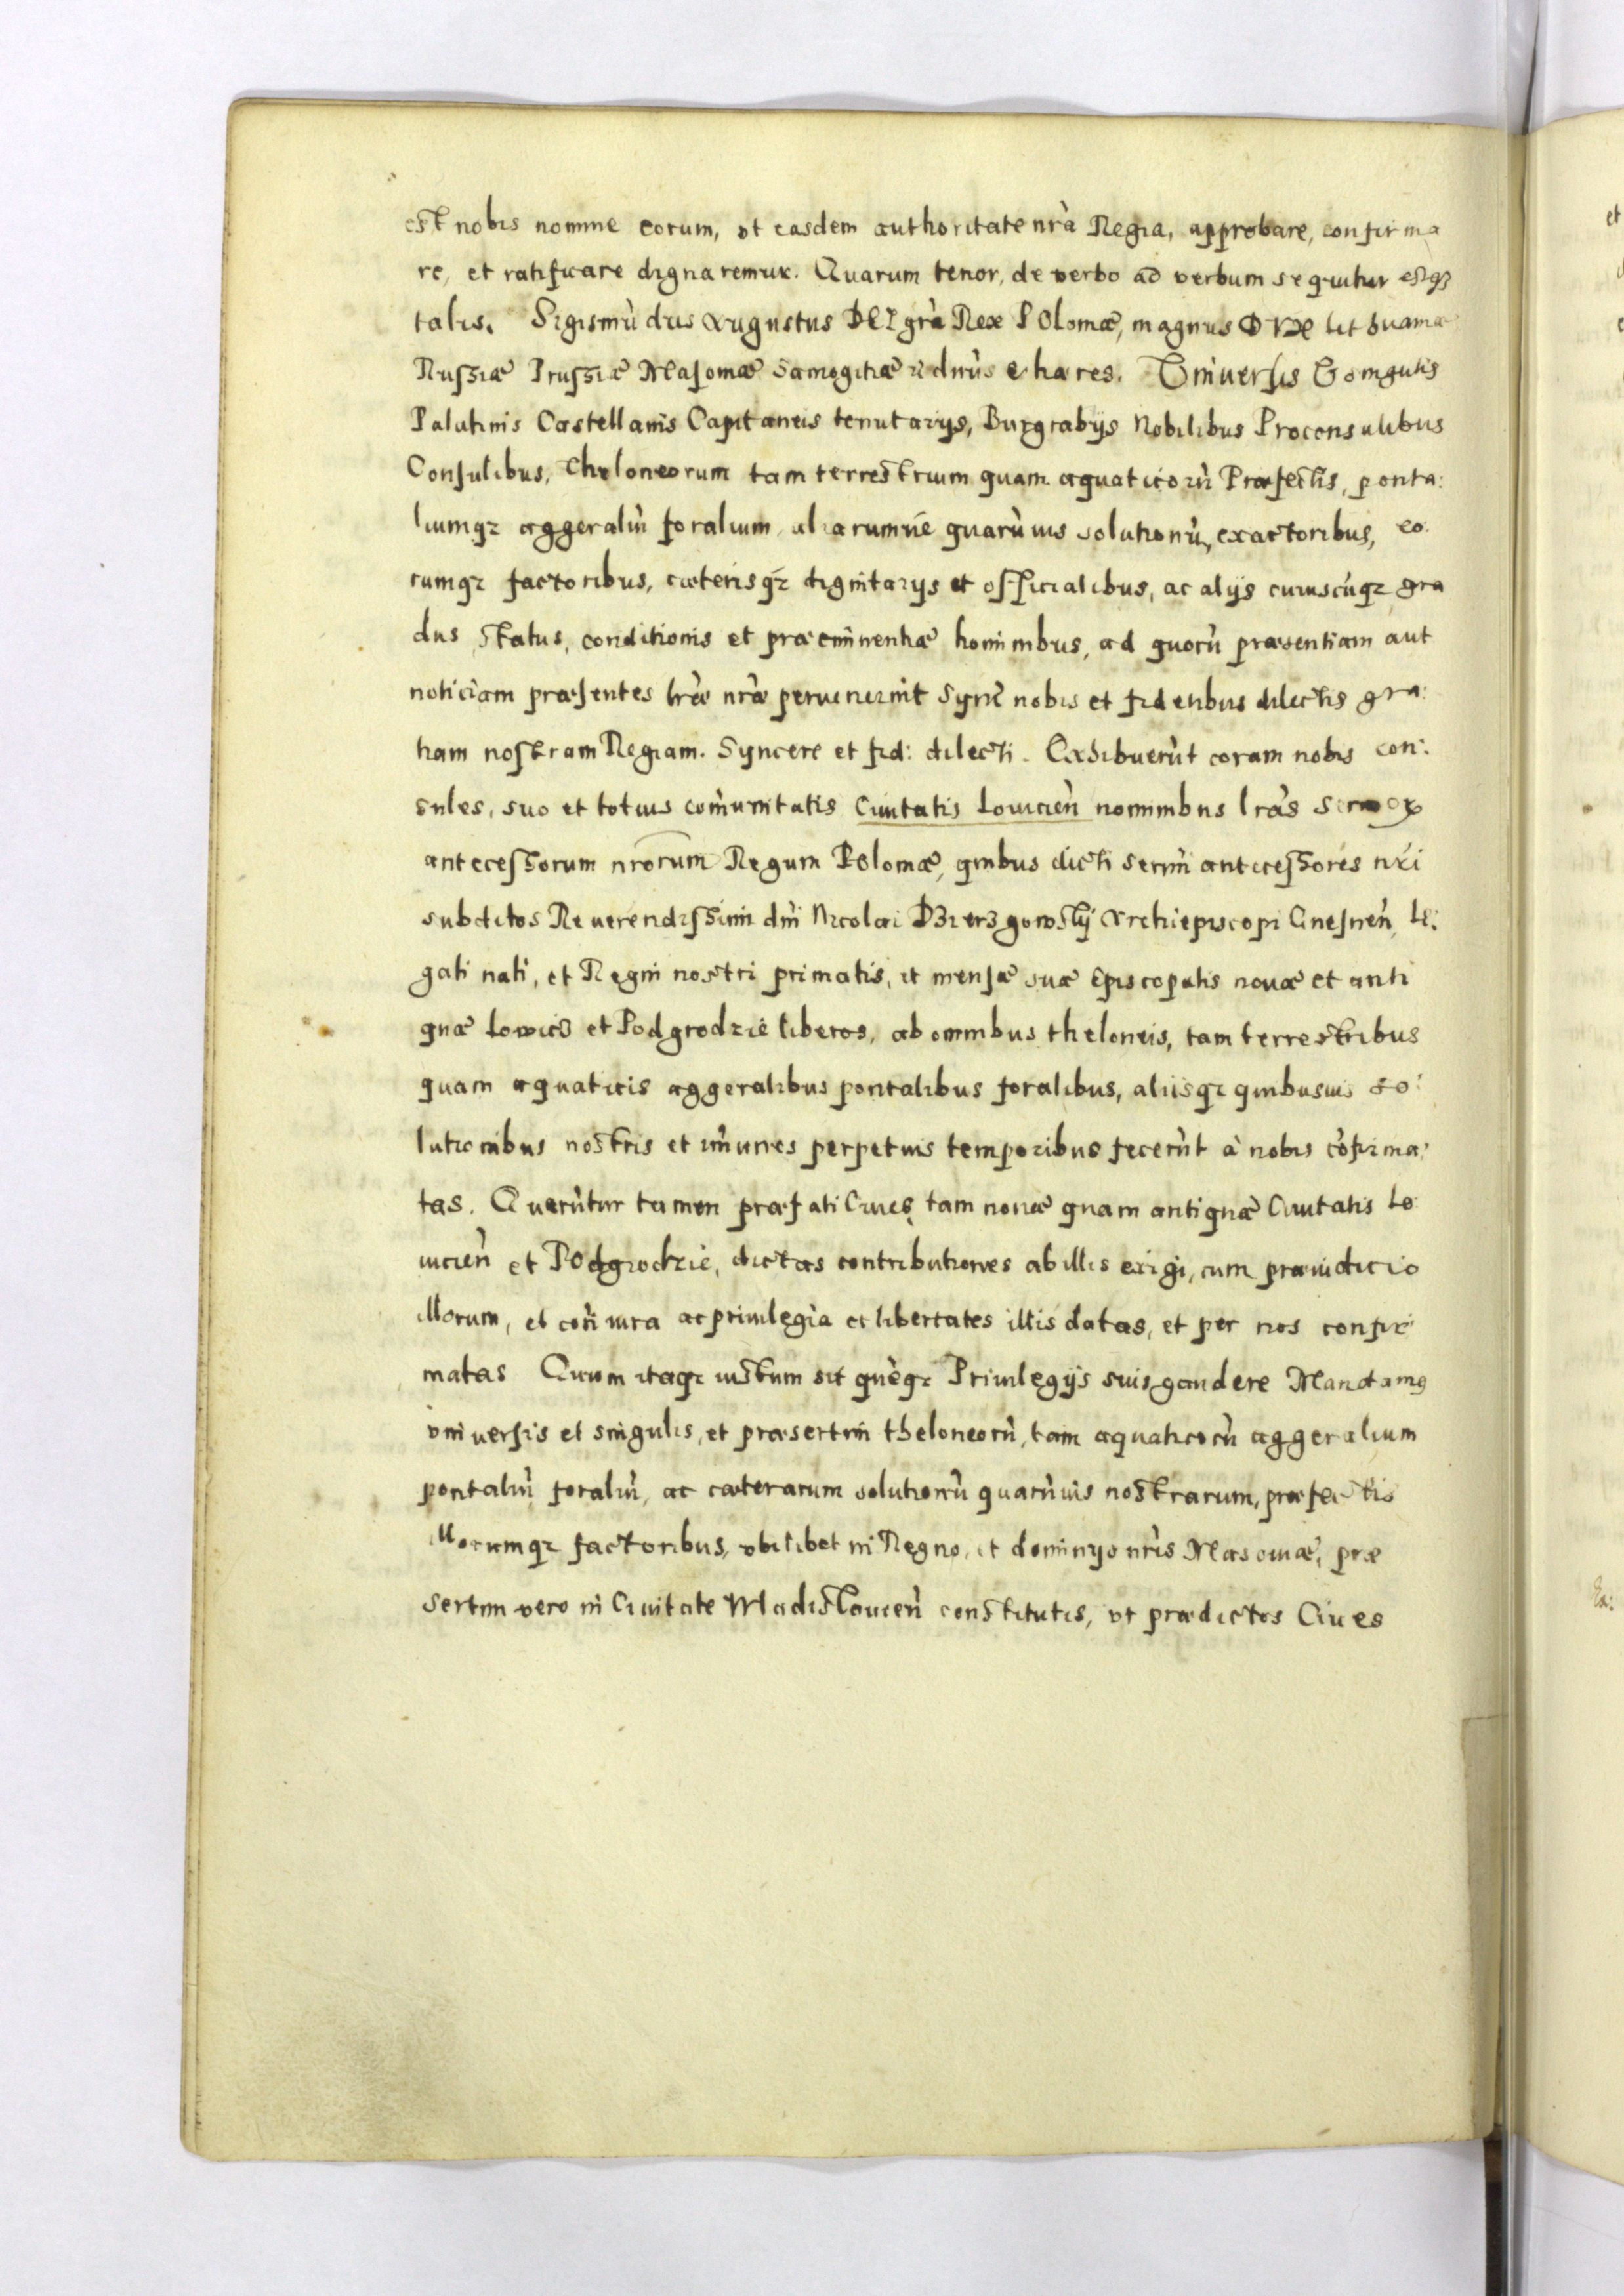 est nobis nomine eorum, vt easdem authoritate nrà Regia, approbare, confirma
re, et ratificare dignaremur. Quarum tenor, de verbo ad verbum sequitur estq3
talis. Sigismùdus Augustus DEI grà Rex POloniæ, magnus DVX Lithuaniæ
Russiæ Prussiæ Masoviæ Samogitiæ dnùs & hæres. Vniversis
Palatinis Castellanis Capitaneis tenutarijs, Burgrabijs Nobilibus Proconsulibus
Consulibus, Theloneorum tam terrestrium quam aquaticorù Præfectis, ponta:
liumq; aggeraliù foralium, aliarumvé quarùuis solutionù, exactoribus, eo
rumq; factoribus, cæterisq; dignitarijs et officialibus, ac alijs cuiuscùq; gra
dus, status, conditionis et præeminentiæ hominibus, ad quorù præsentiam aut
noticiam præsentes lræ nræ peruenerint Sync nobis et fidelibus dilectis gra:
tiam nostram Regiam. Syncere et fid: dilecti. Exhibuerùt coram nobis con:
sules, suo et totius comùnitatis Ciuitatis Louicień nominibus lràs Sermor
antecessorum nrorum Regum Poloniæ, quibus dicti sermi antecessores nri
subditos Reuerendissimi dni Nicolai Dzierzgowskij Archiepiscopi Gnesneń, Le:
gati nati, et Regni nostri primatis, et mensæ suæ Episcopalis nouæ et anti
quæ Lowicz et Podgrodzie liberos, ab omnibus theloneis, tam terrestribus
quam aquaticis aggeralibus pontalibus foralibus, aliisq; quibusuis so:
lutionibus nostris et imunes perpetuis temporibus fecerùt à nobis còfirma:
tas. Querùtur tamen præfati Ciues tam nouæ quam antiquæ Ciuitatis Lo
uicień et POdgrodzie, dictas contributiones ab illis exigi, cum præiudicio
illorum, et coń iura ac priuilegia et libertates illis datas, et per nos confir
matas Quum itaq; iustum sit quèq; Priuilegijs suis gaudere Mandamg
vniuersis et singulis, et præsertim theloneorù, tam aquaticorù aggeralium
pontaliù foraliù, ac cæterarum solutionù quarùuis nostrarum, præfectis
illorumq; factoribus, vbilibet in Regno, et dominijs nris Masouiæ, præ
sertim vero in Ciuitate Wladislauień constitutis, vt prædictos Ciues